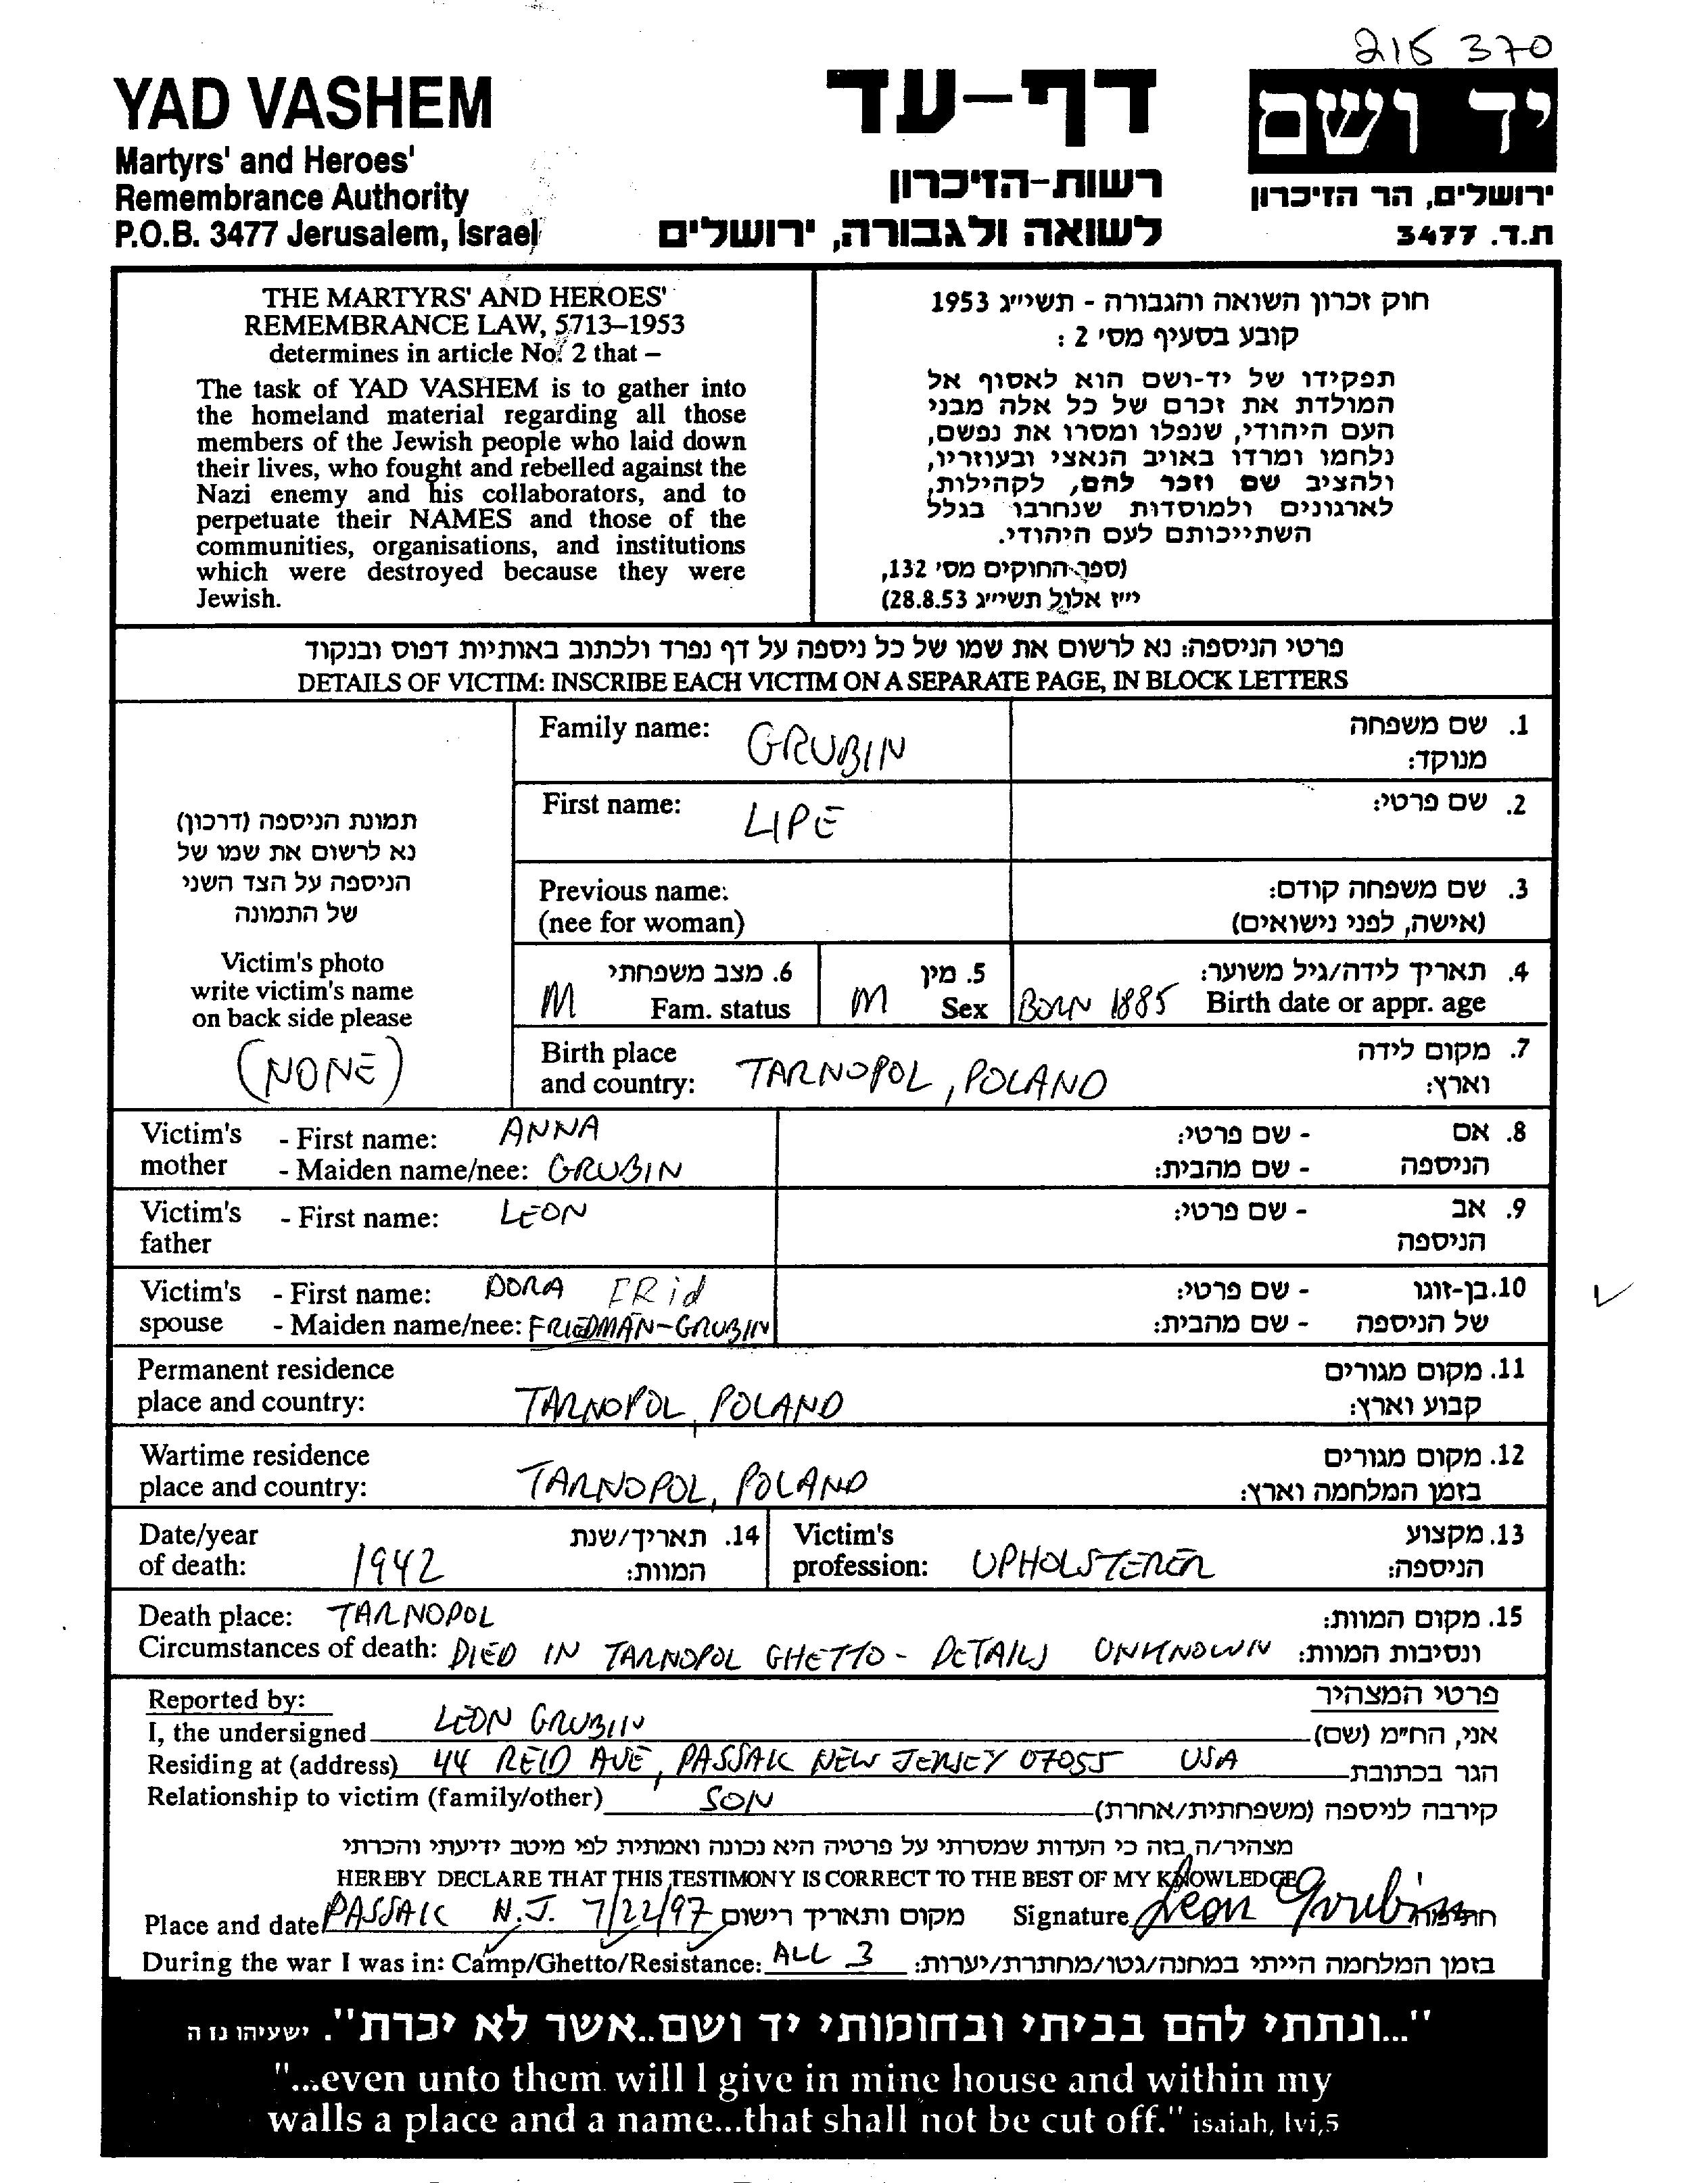 215 370
YAD VASHEM
Martyrs' and Heroes'
Remembrance Authority
P.O.B. 3477 Jerusalem, Israel
דף-עד
רשות-הזיכרון
לשואה ולגבורה, ירושלים
יד ושם
ירושלים, הר הזיכרון
ת.ד. 3477
THE MARTYRS' AND HEROES'
REMEMBRANCE LAW, 5713–1953
determines in article No. 2 that –
The task of YAD VASHEM is to gather into
the homeland material regarding all those
members of the Jewish people who laid down
their lives, who fought and rebelled against the
Nazi enemy and his collaborators, and to
perpetuate their NAMES and those of the
communities, organisations, and institutions
which were destroyed because they were
Jewish.
חוק זכרון השואה והגבורה - תשי״ג 1953
קובע בסעיף מס' 2 :
תפקידו של יד-ושם הוא לאסוף אל
המולדת את זכרם של כל אלה מבני
העם היהודי, שנפלו ומסרו את נפשם,
נלחמו ומרדו באויב הנאצי ובעוזריו,
ולהציב שם וזכר להם, לקהילות,
לארגונים ולמוסדות שנחרבו בגלל
השתייכותם לעם היהודי.
(ספר החוקים מס' 132,
י״ז אלול תשי״ג 28.8.53)
פרטי הניספה: נא לרשום את שמו של כל ניספה על דף נפרד ולכתוב באותיות דפוס ובנקוד
DETAILS OF VICTIM: INSCRIBE EACH VICTIM ON A SEPARATE PAGE, IN BLOCK LETTERS
תמונת הניספה (דרכון)
נא לרשום את שמו של
הניספה על הצד השני
של התמונה
Victim's photo
write victim's name
on back side please
(NONE)
Family name: GRUBIN 1. שם משפחה
מנוקד:
First name: LIPE 2. שם פרטי:
Previous name: 3. שם משפחה קודם:
(nee for woman) (אישה, לפני נישואים)
M 6. מצב משפחתי
Fam. status
M 5. מין
Sex
4. תאריך לידה/גיל משוער:
BORN 1885 Birth date or appr. age
Birth place 7. מקום לידה
and country: TARNOPOL, POLAND וארץ:
Victim's - First name: ANNA - שם פרטי: 8. אם
mother - Maiden name/nee: GRUBIN - שם מהבית: הניספה
Victim's - First name: LEON - שם פרטי: 9. אב
father הניספה
Victim's - First name: DORA FRid - שם פרטי: 10. בן-זוגו
spouse - Maiden name/nee: FRIEDMAN-GRUBIN - שם מהבית: של הניספה
Permanent residence 11. מקום מגורים
place and country: TARNOPOL, POLAND קבוע וארץ:
Wartime residence 12. מקום מגורים
place and country: TARNOPOL, POLAND בזמן המלחמה וארץ:
Date/year 14. תאריך/שנת
of death: 1942 המוות:
Victim's 13. מקצוע
profession: UPHOLSTERER הניספה:
Death place: TARNOPOL 15. מקום המוות:
Circumstances of death: DIED IN TARNOPOL GHETTO - DETAILS UNKNOWN ונסיבות המוות:
Reported by: פרטי המצהיר
I, the undersigned LEON GRUBIN אני, הח״מ (שם)
Residing at (address) 44 REID AVE, PASSAIC NEW JERSEY 07055 USA הגר בכתובת
Relationship to victim (family/other) SON קירבה לניספה (משפחתית/אחרת)
מצהיר/ה בזה כי העדות שמסרתי על פרטיה היא נכונה ואמתית לפי מיטב ידיעתי והכרתי
HEREBY DECLARE THAT THIS TESTIMONY IS CORRECT TO THE BEST OF MY KNOWLEDGE
Place and date PASSAIC N.J. 7/22/97 מקום ותאריך רישום Signature Leon Grubin חתימה
During the war I was in: Camp/Ghetto/Resistance: ALL 3 בזמן המלחמה הייתי במחנה/גטו/מחתרת/יערות:
"...ונתתי להם בביתי ובחומותי יד ושם..אשר לא יכרת". ישעיהו נז ה
"...even unto them will I give in mine house and within my
walls a place and a name...that shall not be cut off." isaiah, lvi,5